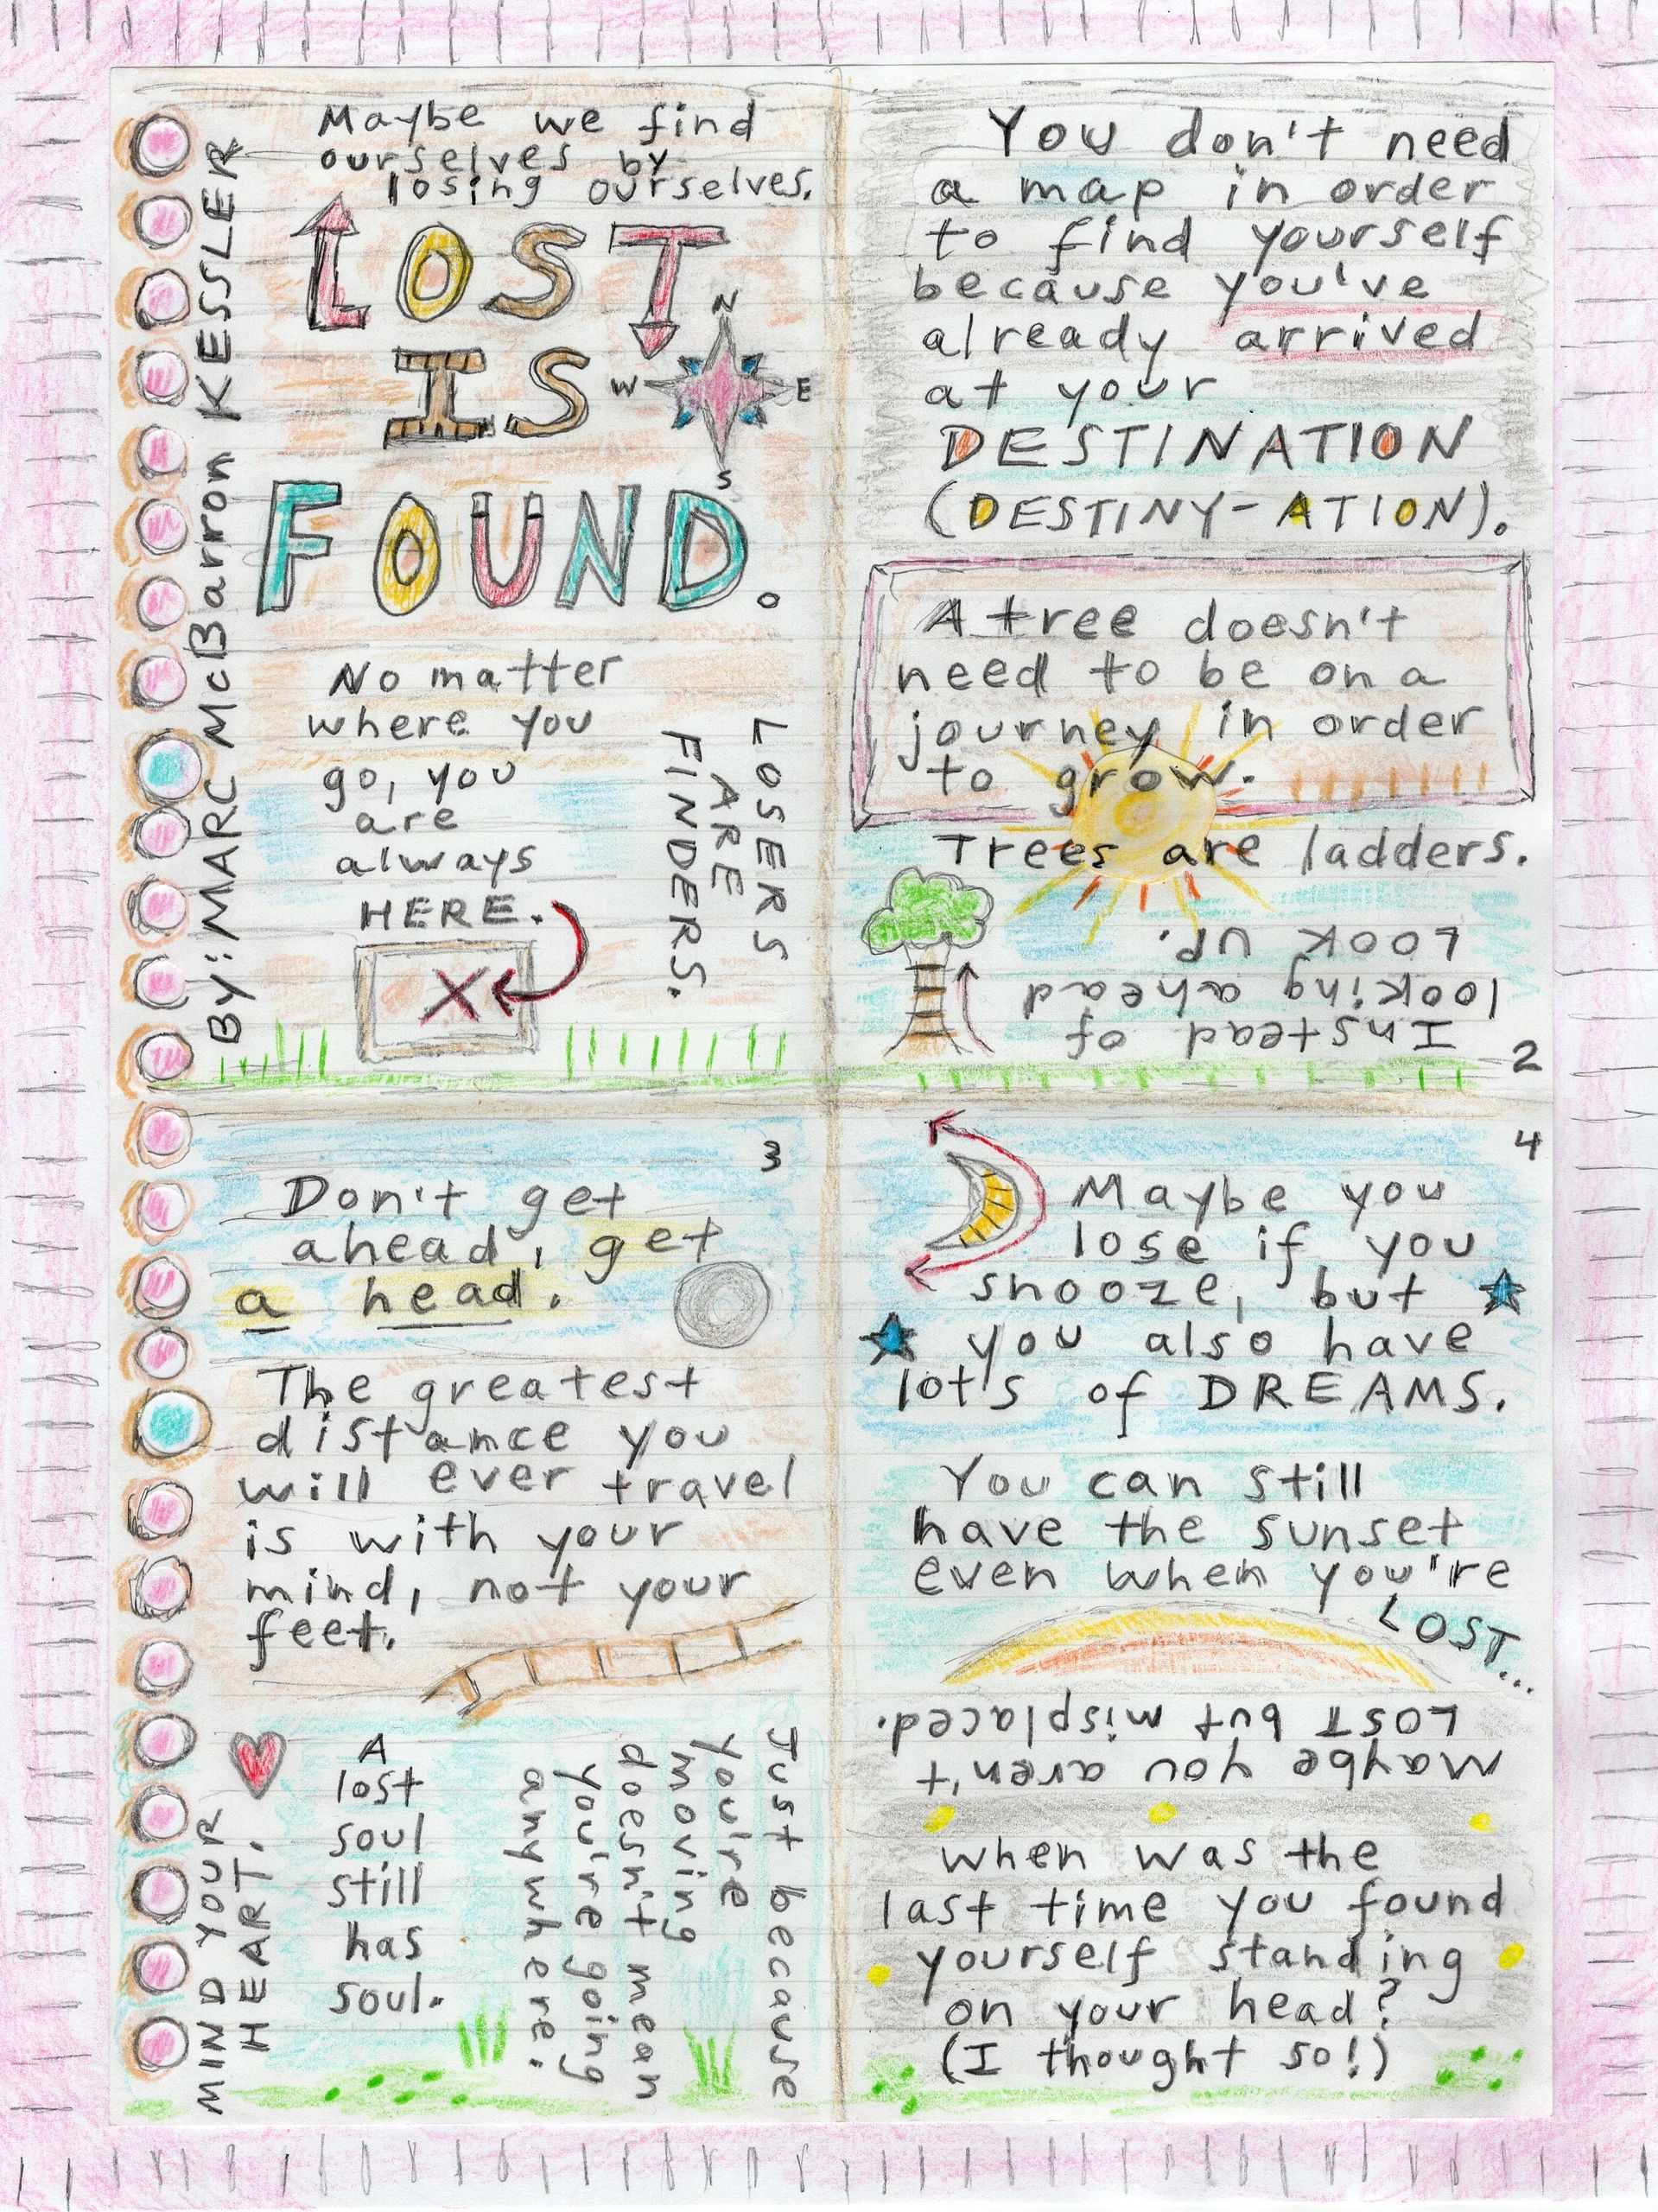 Maybe we find
ourselves by
losing ourselves.
LOST
IS
FOUND.
N
W
E
S
BY: MARC McBarron KESSLER
No matter
where you
go, you
are
always
HERE.
X
LOSERS
ARE
FINDERS.
You don't need
a map in order
to find yourself
because you've
already arrived
at your
DESTINATION
(DESTINY-ATION).
A tree doesn't
need to be on a
journey in order
to grow.
Trees are ladders.
Instead of
looking ahead
LOOK UP.
2
3
Don't get
ahead, get
a head.
The greatest
distance you
will ever travel
is with your
mind, not your
feet.
MIND YOUR
HEART.
A
lost
soul
still
has
soul.
Just because
you're
moving
doesn't mean
you're going
anywhere.
4
Maybe you
lose if you
snooze, but
you also have
lot's of DREAMS.
You can still
have the sunset
even when you're
LOST...
Maybe you aren't
LOST but misplaced.
when was the
last time you found
yourself standing
on your head?
(I thought so!)